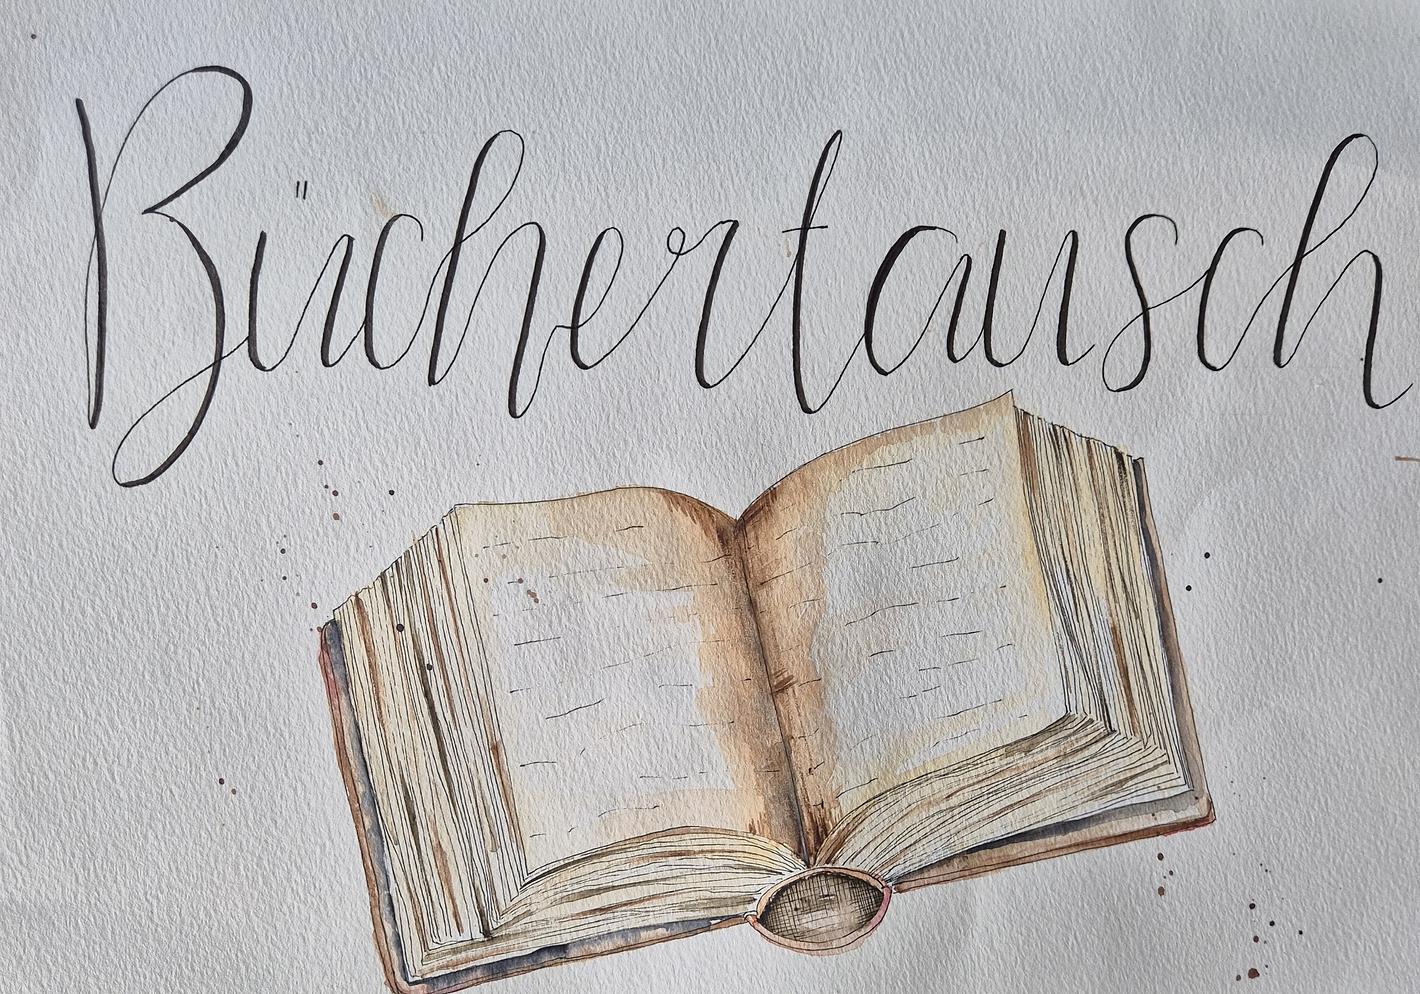 Büchertausch